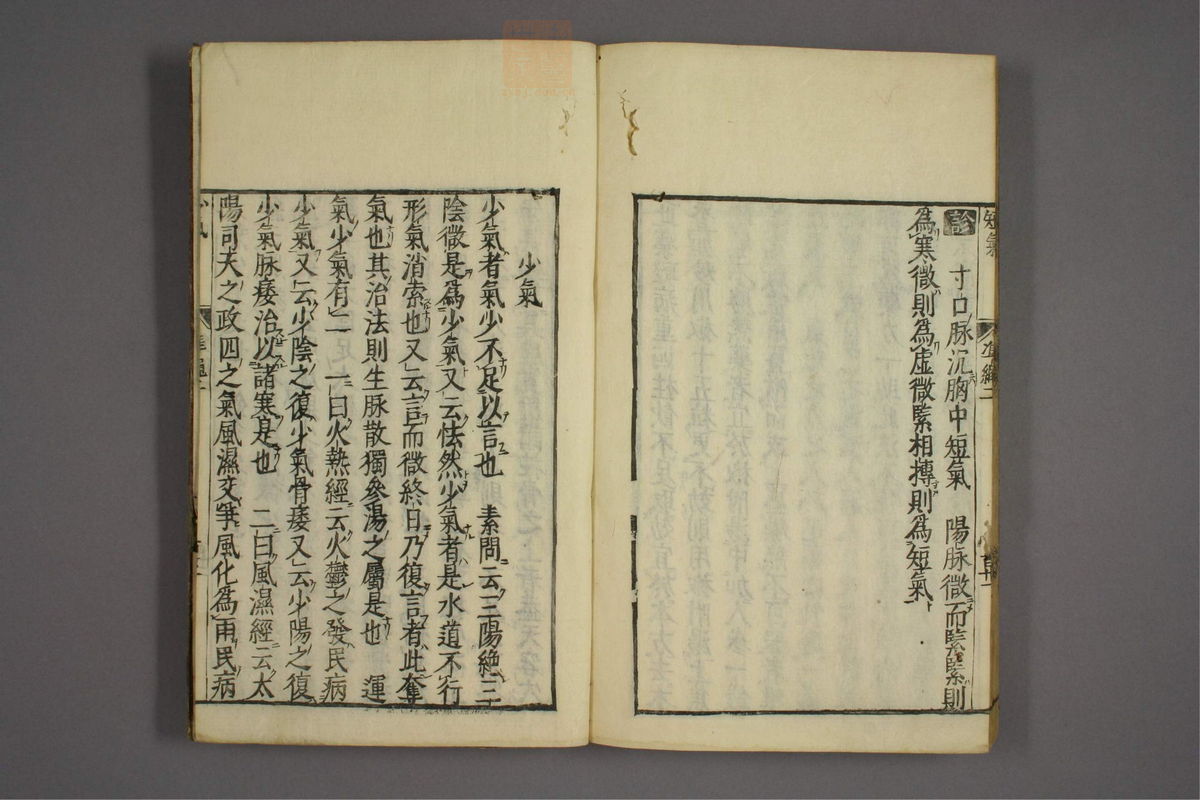 短氣
診　寸口脉沉胸中短氣　陽脉微而緊緊則
爲寒微則爲虛微緊相搏則爲短氣
少氣
少氣者氣少不足以言也　素問云三陽絶三
陰微是爲少氣又云怯然少氣者是水道不行
形氣消索也又云言而微終日乃復言者此奪
氣也其治法則生脉散獨參湯之屬是也　運
氣少氣有二　一曰火熱經云火鬱之發民病
少氣又云少陰之復少氣骨痿又云少陽之復
少氣脉痿治以諸寒是也　二曰風濕經云太
陽司天之政四之氣風濕交爭風化爲雨民病
少氣